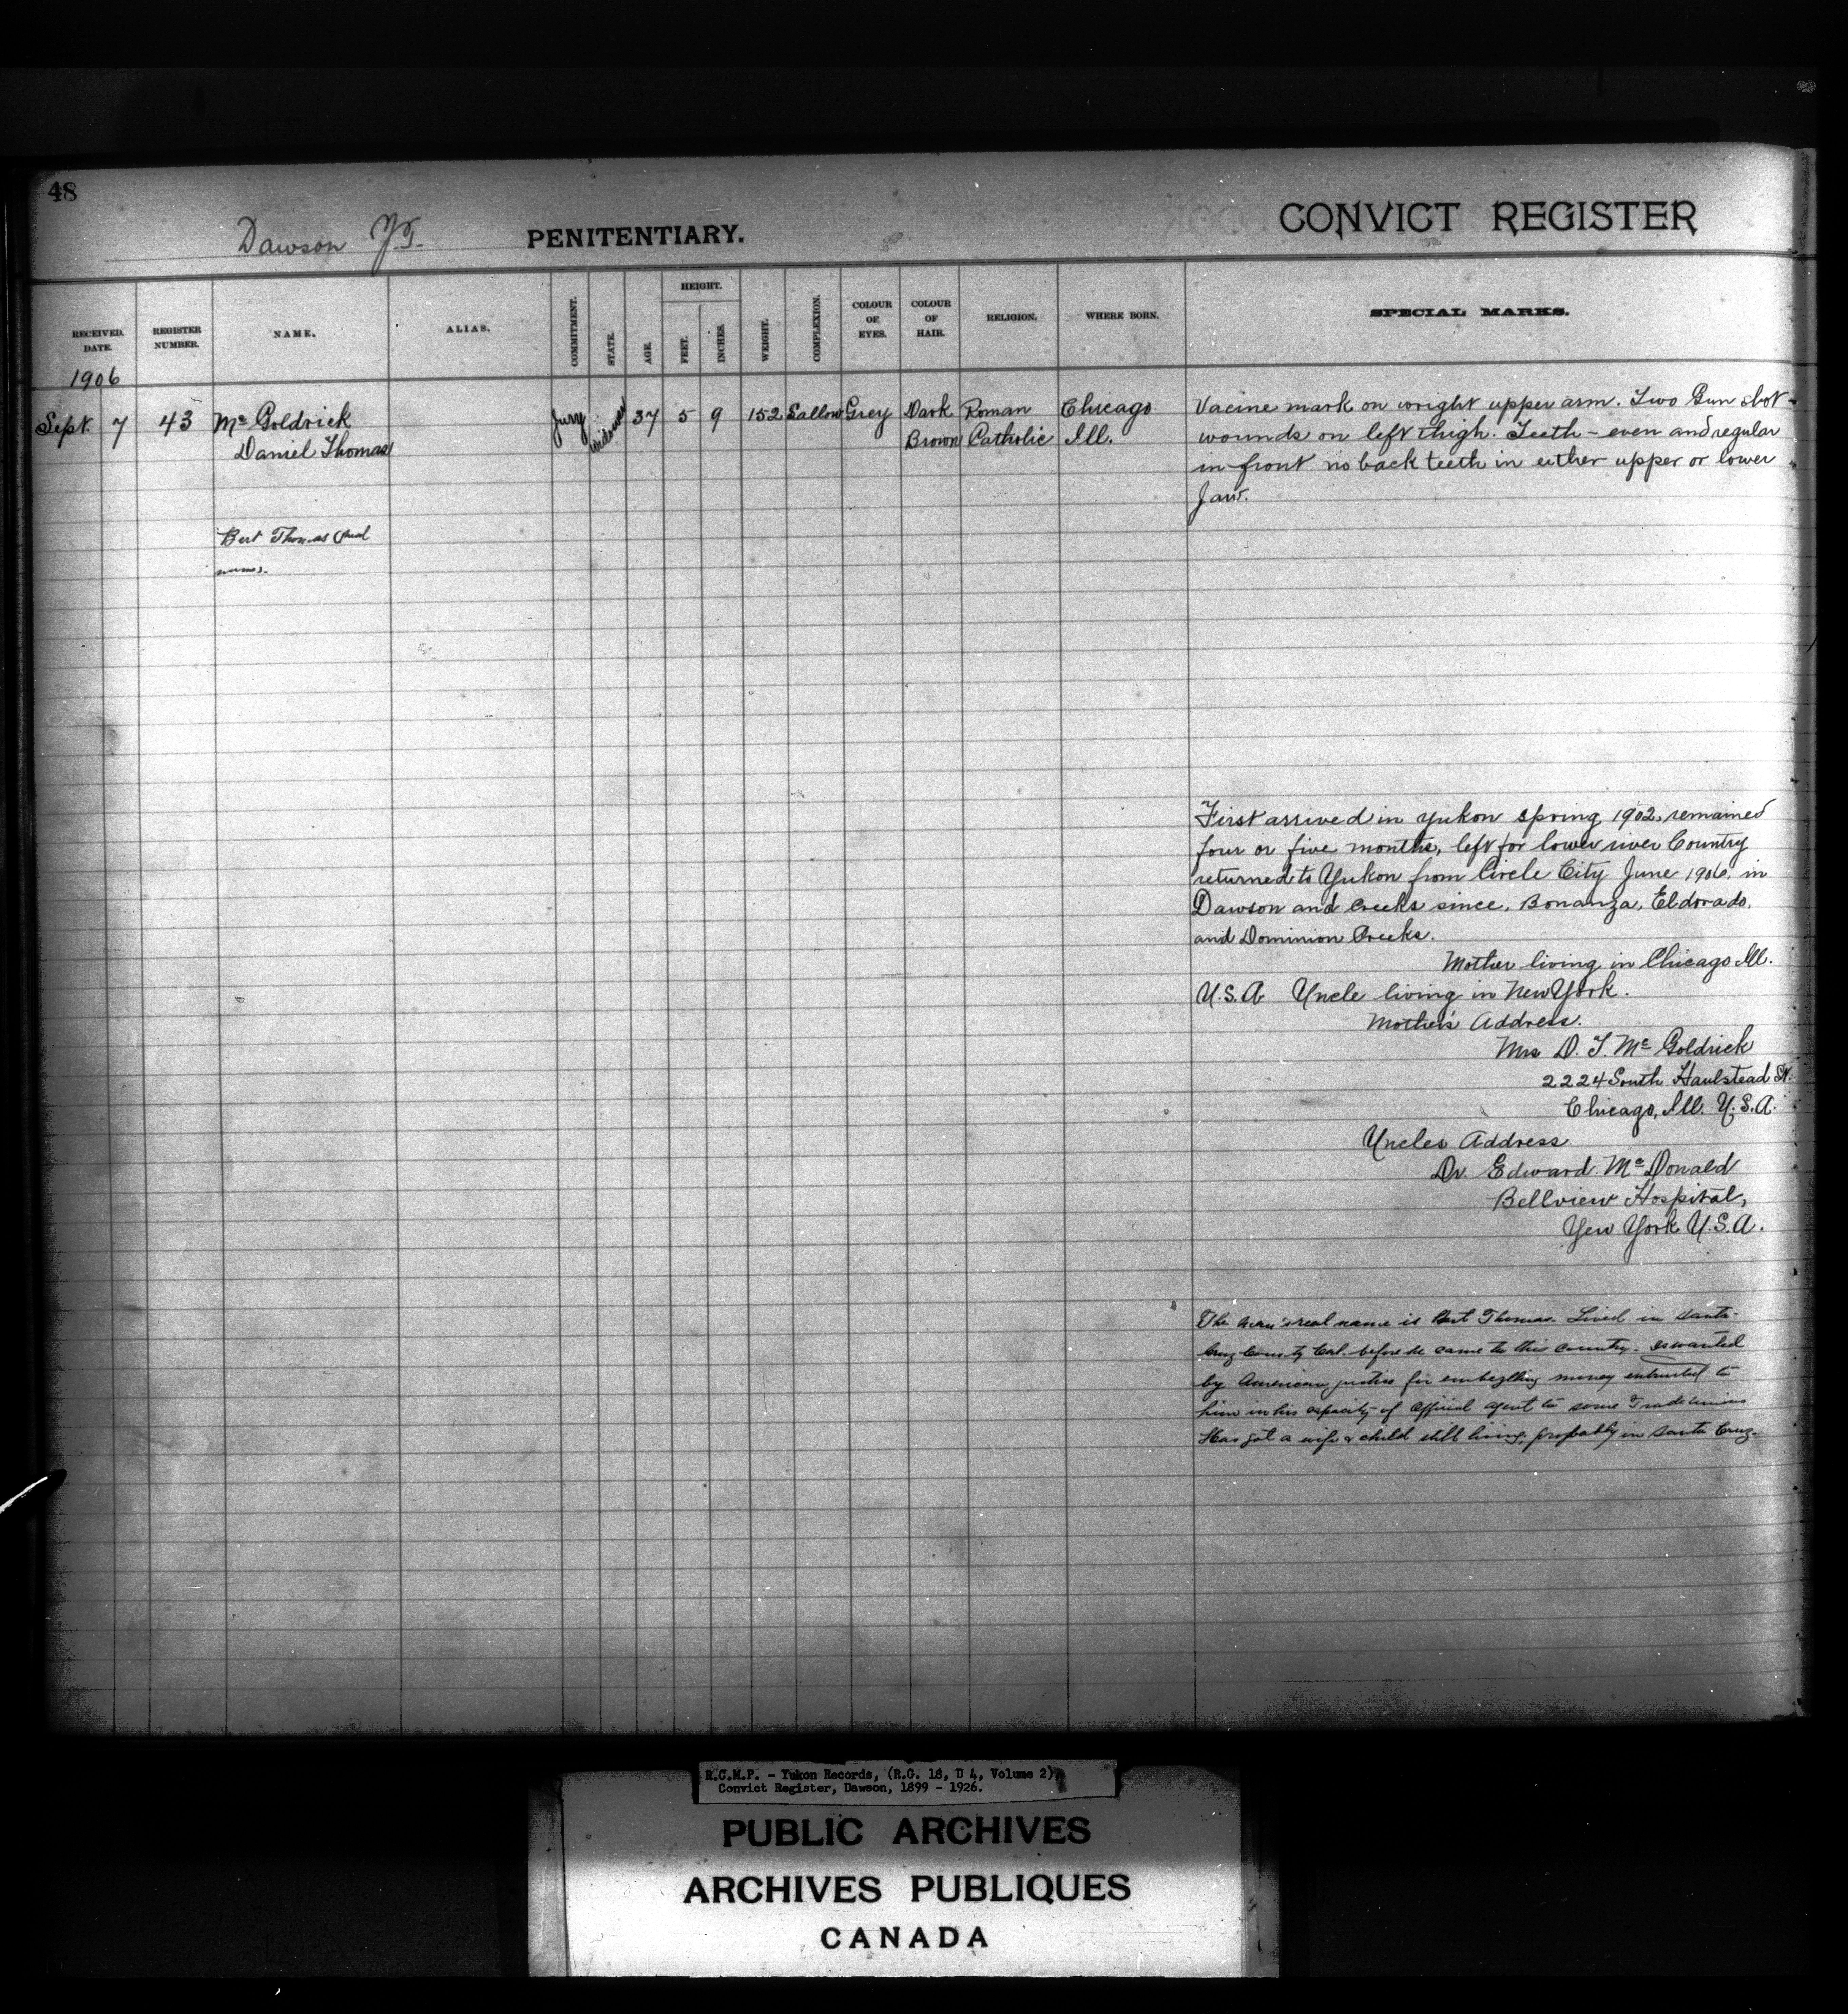 48
Dawson Y.T. PENITENTIARY.
CONVICT REGISTER
RECEIVED. DATE.
REGISTER NUMBER.
NAME.
ALIAS.
COMMITMENT.
STATE.
AGE.
HEIGHT.
FEET.
INCHES.
WEIGHT.
COMPLEXION.
COLOUR OF EYES.
COLOUR OF HAIR.
RELIGION.
WHERE BORN.
SPECIAL MARKS.
1906
Sept. 7 43 Mc Goldrick Jury widower 37 5 9 152 Sallow Grey Dark Roman Chicago Vacine mark on wright upper arm. Two Gun shot
Daniel Thomas Brown Catholic Ill. wounds on left thigh. Teeth - even and regular
in front no back teeth in either upper or lower
Jaw.
Bert Thomas (real
name).
First arrived in Yukon spring 1902, remained
four or five months, left for lower river Country
returned to Yukon from Circle City June 1906, in
Dawson and Creeks since, Bonanza, Eldorado,
and Dominion Creeks.
Mother living in Chicago Ill.
U.S.A Uncle living in New York.
Mother's Address.
Mrs D. T. Mc Goldrick
2224 South Haulstead St.
Chicago, Ill. U.S.A.
Uncles Address
Dr. Edward Mc Donald
Bellview Hospital,
Yew York U.S.A.
The man's real name is Bert Thomas. Lived in Santa
Cruz County Cal. before he came to this country. Is wanted
by American justice for embezlling money intrusted to
him in his capacity of Official agent to some Trade Unions
Has got a wife & child still living, probably in Santa Cruz.
R.C.M.P. - Yukon Records, (R.G. 18, D 4, Volume 2),
Convict Register, Dawson, 1899 - 1926.
PUBLIC ARCHIVES
ARCHIVES PUBLIQUES
CANADA